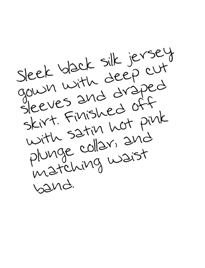 Sleek black silk jersey
gown with deep cut
sleeves and draped
skirt. Finished off
with satin hot pink
plunge collar, and
matching waist
band.